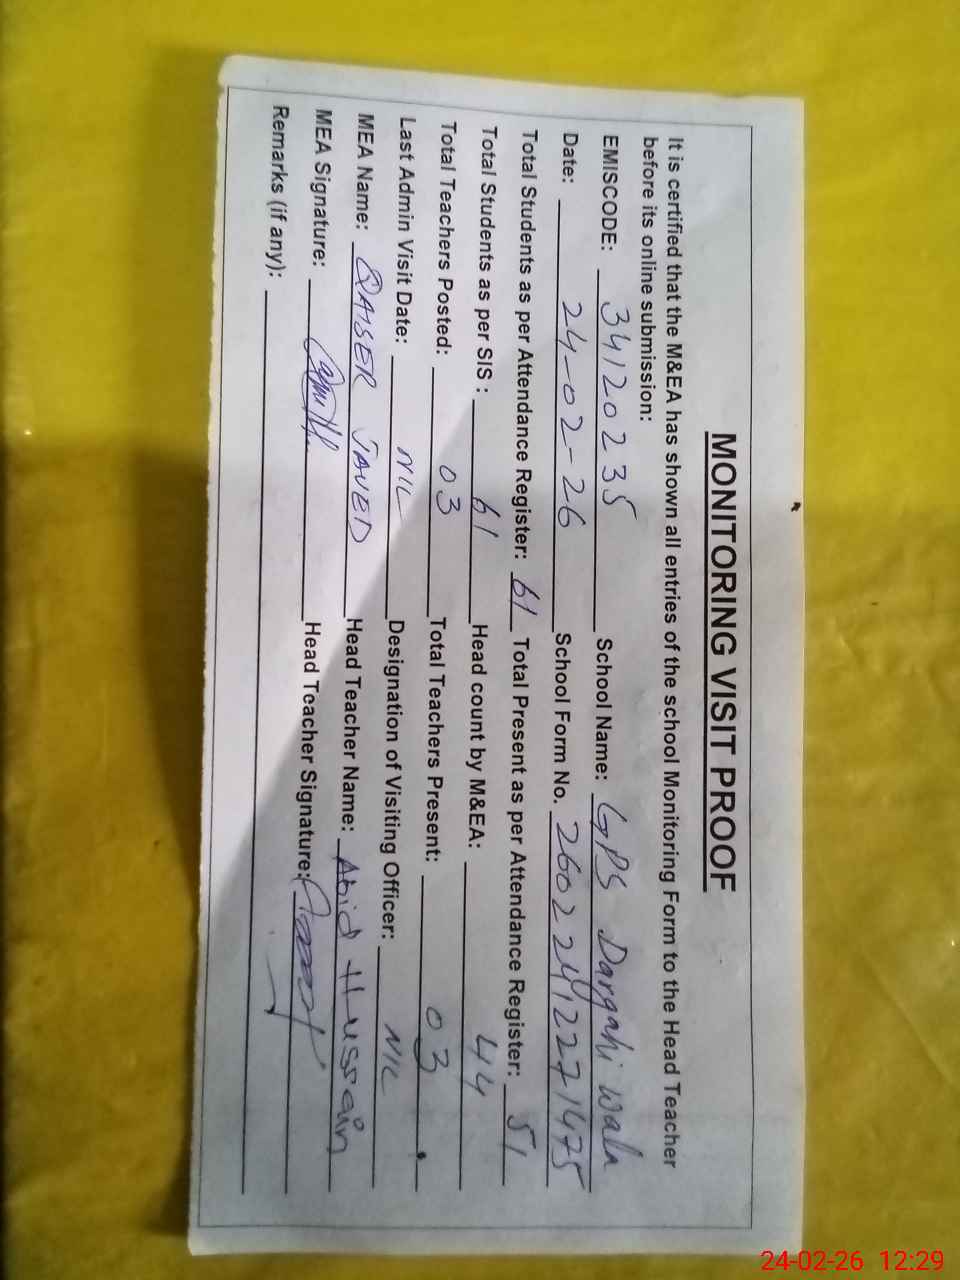 MONITORING VISIT PROOF
It is certified that the M&EA has shown all entries of the school Monitoring Form to the Head Teacher
before its online submission:
EMISCODE: 34120235 School Name: GPS Dargahi wala
Date: 24-02-26 School Form No. 26022412271475
Total Students as per Attendance Register: 61 Total Present as per Attendance Register: 51
Total Students as per SIS : 61 Head count by M&EA: 44
Total Teachers Posted: 03 Total Teachers Present: 03
Last Admin Visit Date: NIL Designation of Visiting Officer: NIL
MEA Name: QAISER JAVED Head Teacher Name: Abid Hussain
MEA Signature: Head Teacher Signature:
Remarks (if any):
24-02-26 12:29